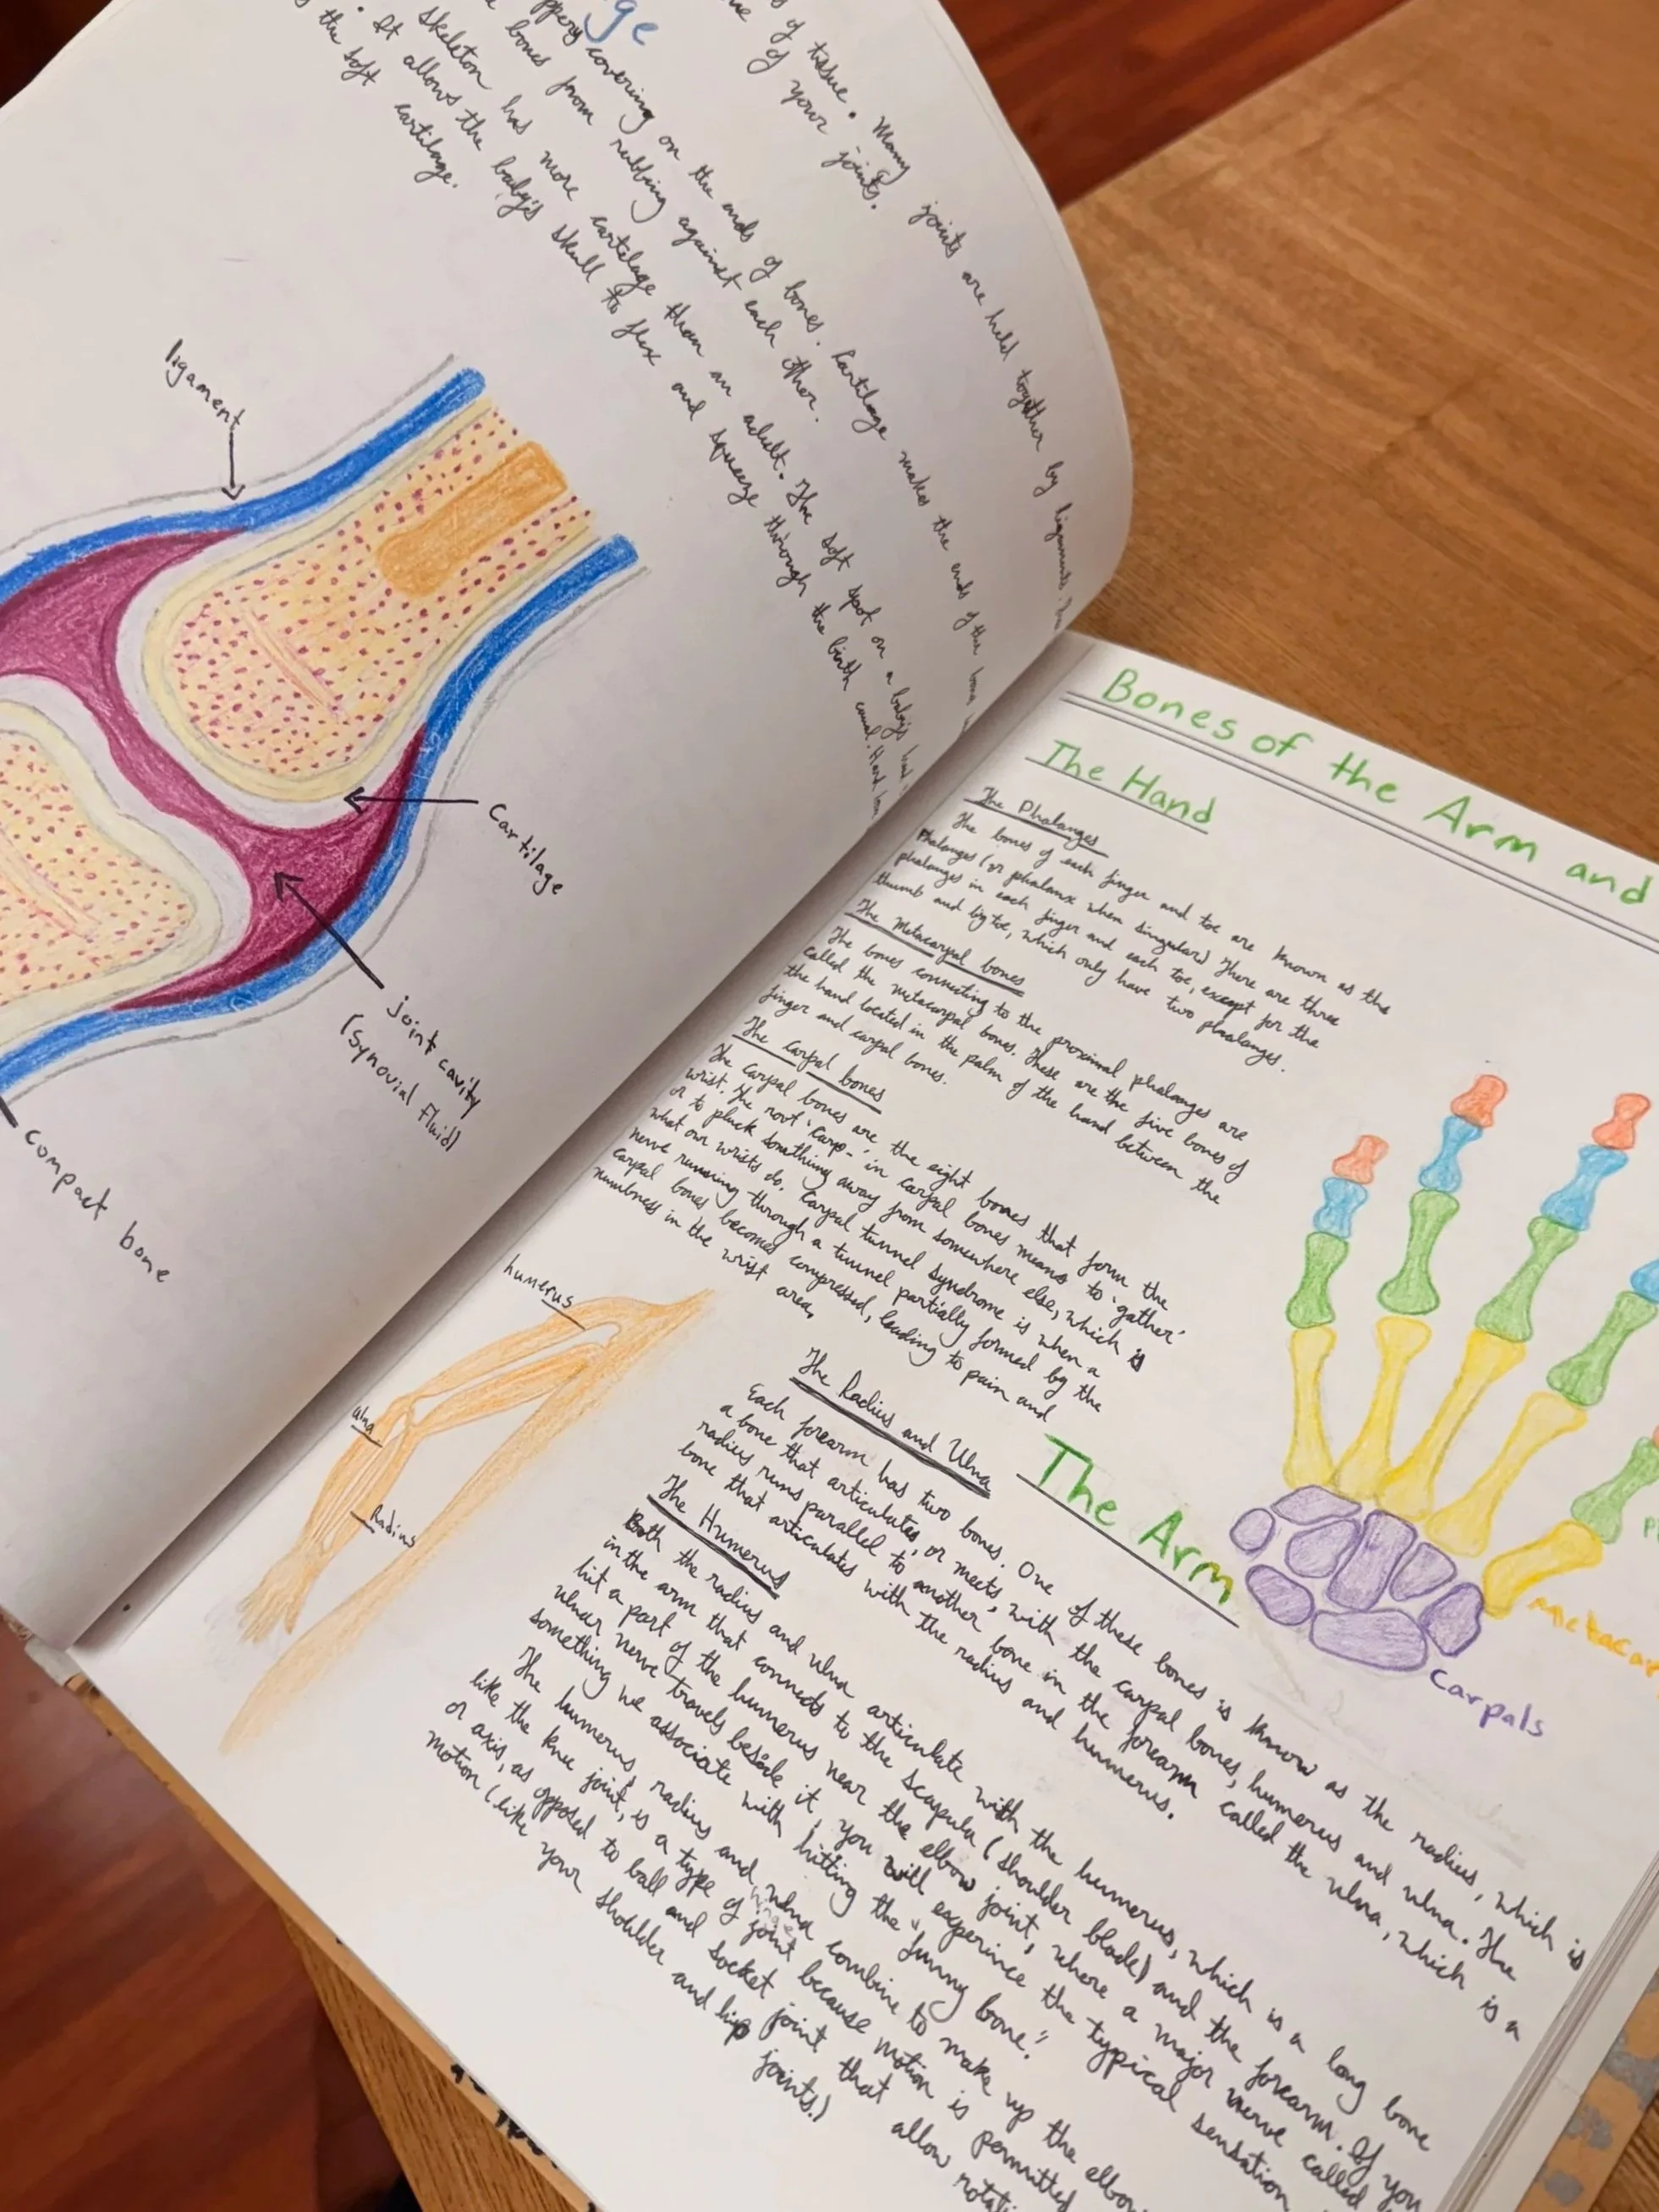 of tissue. Many joints are held together by ligaments.
of your joints.
covering on the ends of bones. Cartilage makes the ends of the bone
bones from rubbing against each other.
skeleton has more cartilage than an adult. The soft spot on a baby's
It allows the baby's skull to flex and squeeze through the birth canal. Hard
the soft cartilage.
ligament
Cartilage
joint cavity
(synovial fluid)
compact bone
Bones of the Arm and
The Hand
The Phalanges
The bones of each finger and toe are known as the
phalanges (or phalanx when singular) There are three
phalanges in each finger and each toe, except for the
thumb and big toe, which only have two phalanges.
The Metacarpal bones
The bones connecting to the proximal phalanges are
called the metacarpal bones. These are the five bones of
the hand located in the palm of the hand between the
finger and carpal bones.
The carpal bones
The carpal bones are the eight bones that form the
wrist. The root 'carp-' in carpal bones means to 'gather'
or to pluck something away from somewhere else, which is
what our wrists do. Carpal tunnel syndrome is when a
nerve running through a tunnel partially formed by the
carpal bones becomes compressed, leading to pain and
numbness in the wrist area.
Metacar
Carpals
humerus
ulna
Radius
The Arm
The Radius and Ulna
Each forearm has two bones. One of these bones is known as the radius, which is
a bone that articulates, or meets, with the carpal bones, humerus and ulna. The
radius runs parallel to another bone in the forearm called the ulna, which is a
bone that articulates with the radius and humerus.
The Humerus
Both the radius and ulna articulate with the humerus, which is a long bone
in the arm that connects to the scapula (shoulder blade) and the forearm. If you
hit a part of the humerus near the elbow joint, where a major nerve called
ulnar nerve travels beside it, you will experince the typical sensation
something we associate with hitting the "funny bone".
The humerus, radius and ulna combine to make up the elbow
like the knee joint, is a type of hinge joint because motion is permitted
or axis, as opposed to ball and socket joint that allow
motion (like your shoulder and hip joints.)